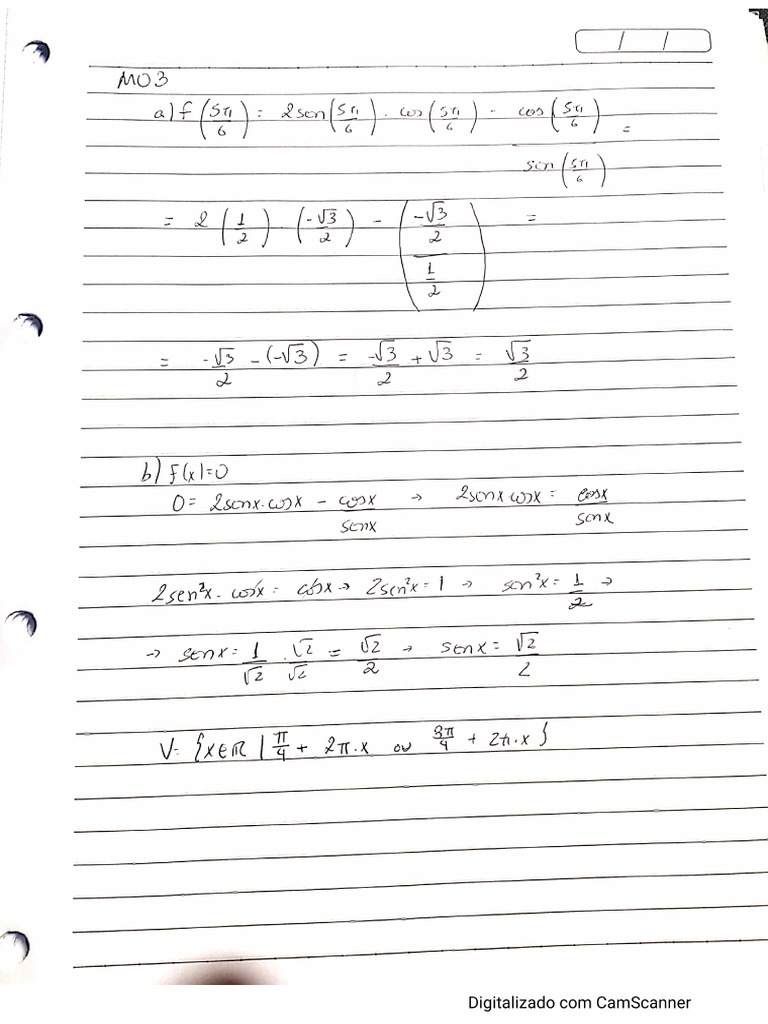 / /
M03
a) f(5π/6) = 2sen(5π/6) · cos(5π/6) - cos(5π/6)/sen(5π/6) =
= 2(1/2) · (-√3/2) - ((-√3/2)/(1/2)) =
= -√3/2 - (-√3) = -√3/2 + √3 = √3/2
b) f(x)=0
0 = 2senx·cosx - cosx/senx → 2senx cosx = cosx/senx
2sen²x · cosx = cosx → 2sen²x = 1 → sen²x = 1/2 →
→ senx = 1/√2 · √2/√2 = √2/2 → senx = √2/2
V = {x∈R | π/4 + 2π·x ou 3π/4 + 2π·x}
Digitalizado com CamScanner